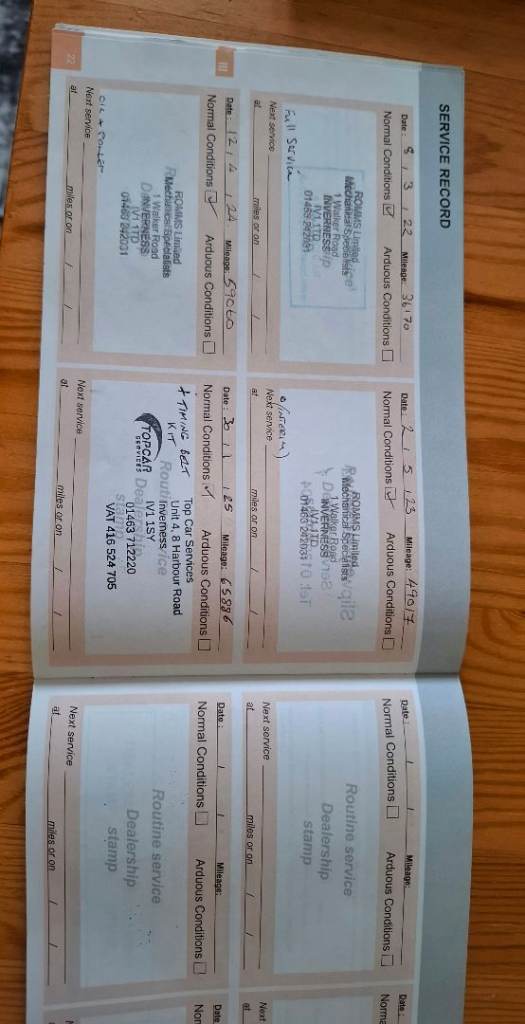 SERVICE RECORD
Date: 8 / 3 / 22 Mileage: 36170
Normal Conditions ☑ Arduous Conditions ☐
ROMMS Limited
Mechanical Specialists
1 Walker Road
INVERNESS
IV1 1TD
01463 242031
Full Service
Next service
at miles or on / /
Date: 2 / 5 / 23 Mileage: 49017
Normal Conditions ☑ Arduous Conditions ☐
ROMMS Limited
Mechanical Specialists
1 Walker Road
INVERNESS
IV1 1TD
01463 242031
(INTERIM)
Next service
at miles or on / /
III
Date: 12 / 4 / 24 Mileage: 59060
Normal Conditions ☑ Arduous Conditions ☐
ROMMS Limited
Mechanical Specialists
1 Walker Road
INVERNESS
IV1 1TD
01463 242031
OIL &
Next service
at miles or on / /
22
Date: 30 / 1 / 25 Mileage: 65886
Normal Conditions ☑ Arduous Conditions ☐
+ TIMING BELT
KIT
TOPCAR
SERVICES
Top Car Services
Unit 4, 8 Harbour Road
Inverness
IV1 1SY
01463 712220
VAT 416 524 705
Routine service
Dealership
stamp
Next service
at miles or on / /
Date: / / Mileage:
Normal Conditions ☐ Arduous Conditions ☐
Routine service
Dealership
stamp
Next service
at miles or on / /
Date: / / Mileage:
Normal Conditions ☐ Arduous Conditions ☐
Routine service
Dealership
stamp
Next service
at miles or on / /
Date:
Norma
Next
at
Date
Nor